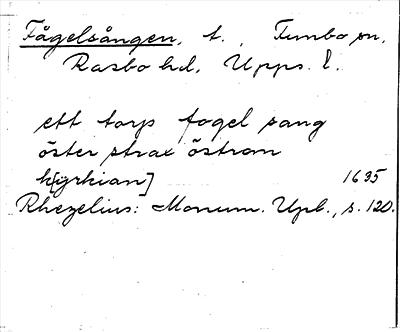 Fågelsången, t., Funbo sn,
Rasbo hd, Upps. l.
ett torp fogel sang
öster strax östran
k[yrkian] 1635
Rhezelius: Monum. Upl., s. 120.